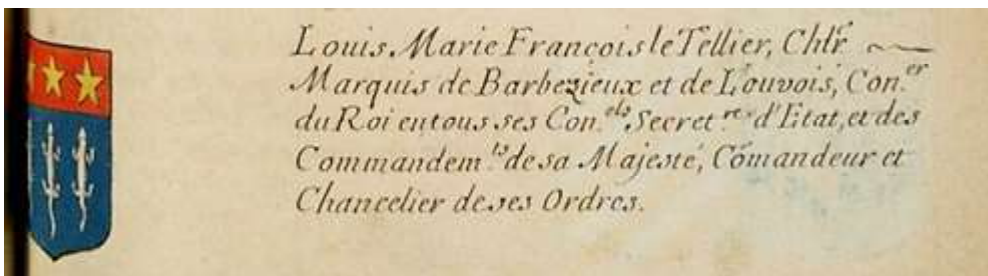 Louis Marie François le Tellier, Chlr̃
Marquis de Barbezieux et de Louvois, Con.er
du Roi en tous ses Con.els Secret.res d'Etat, et des
Commandem.ts de sa Majesté, Cõmandeur et
Chancelier de ses Ordres.